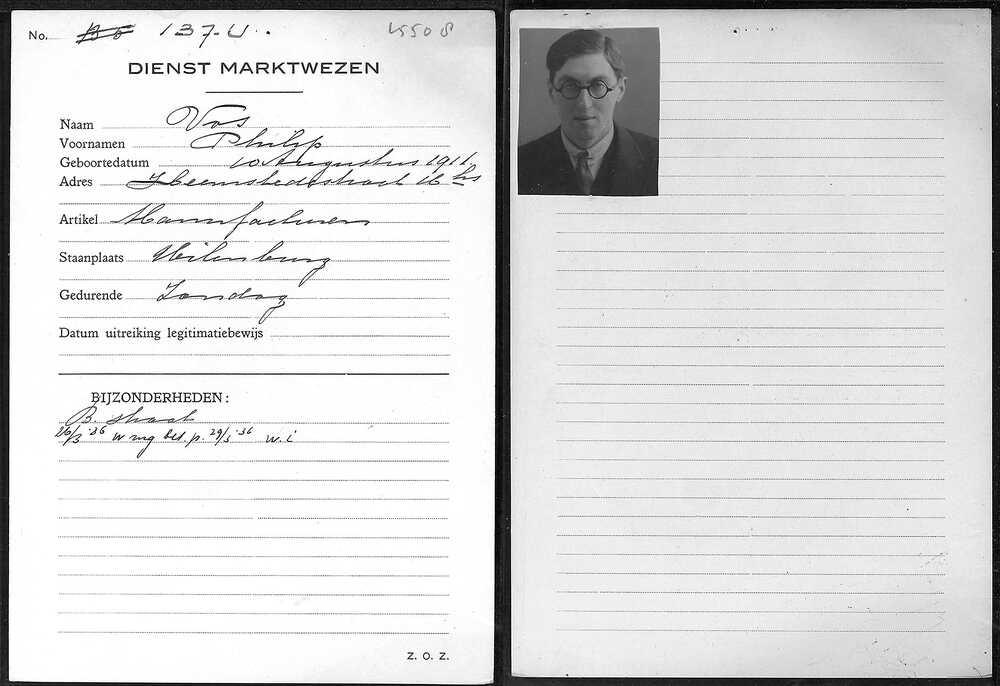 No. 137-U.
4550 8
DIENST MARKTWEZEN
Naam Vos
Voornamen Philip
Geboortedatum 10 Augustus 1911
Adres Heemstedestraat 16 hs
Artikel Manufacturen
Staanplaats Uilenburg
Gedurende Zondag
Datum uitreiking legitimatiebewijs
BIJZONDERHEDEN:
B. straat
26/3 '36 w mg bes. p. 29/3 '36 w.i
Z. O. Z.